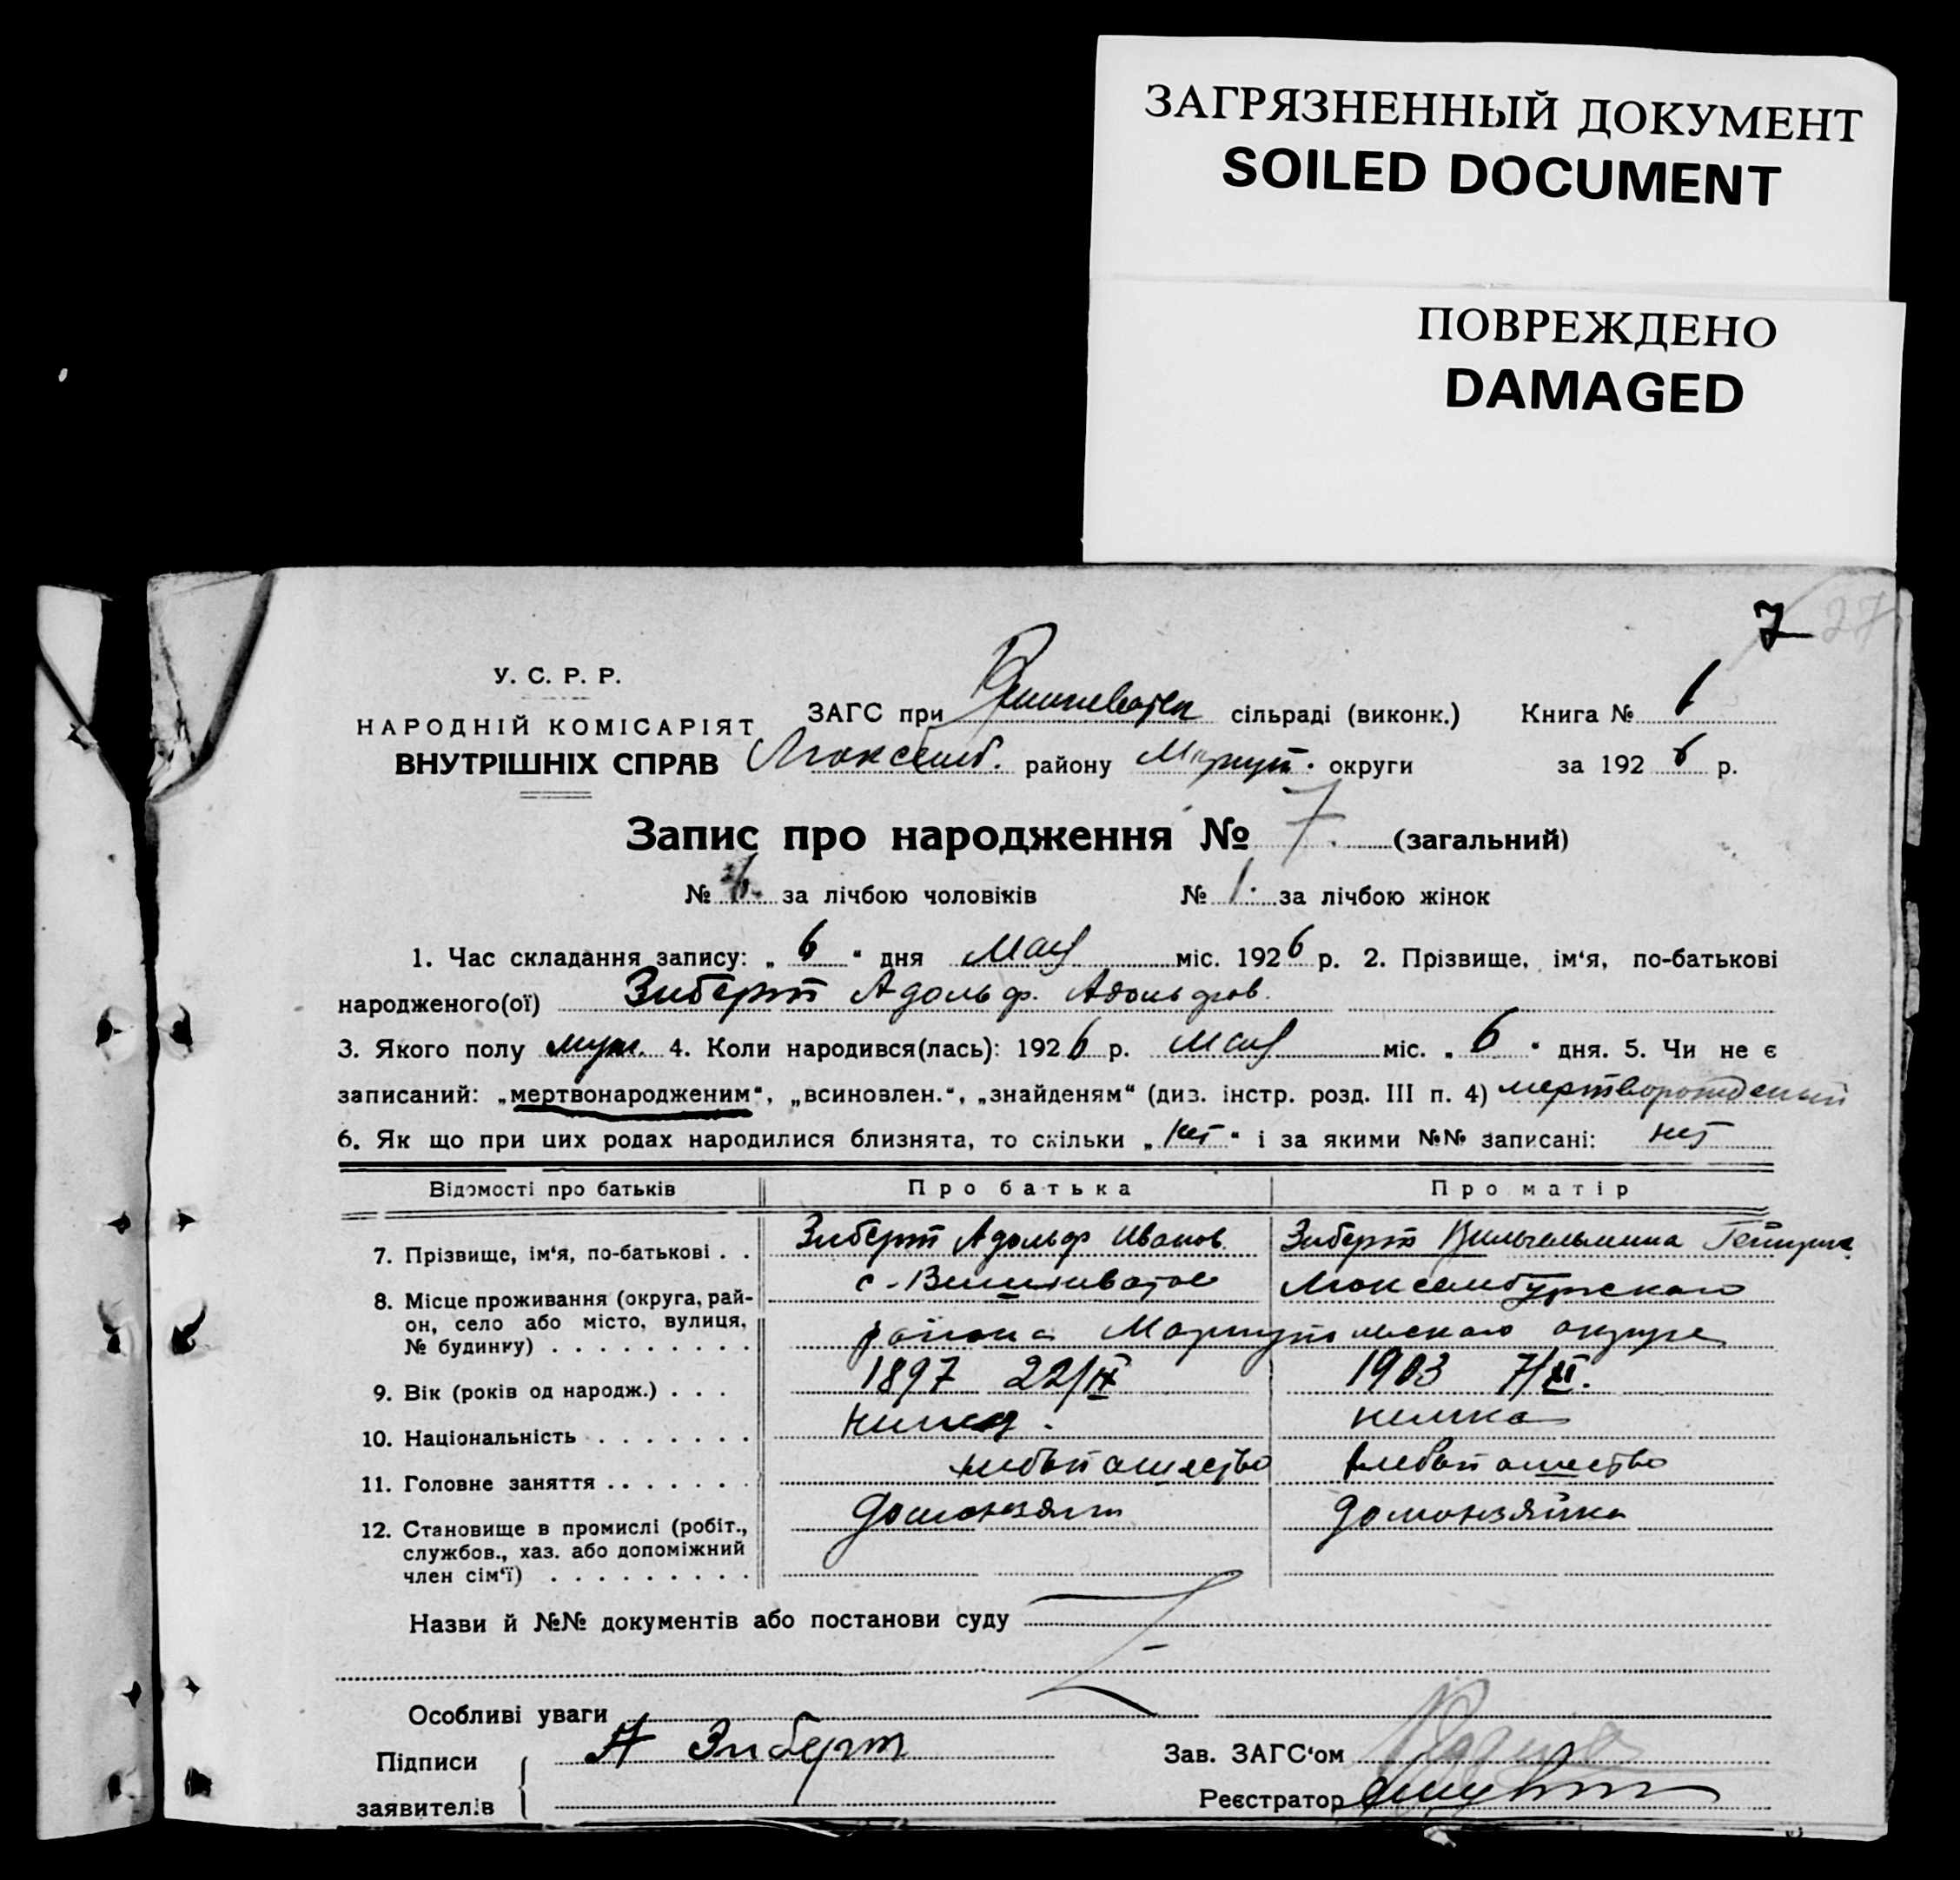 ЗАГРЯЗНЕННЫЙ ДОКУМЕНТ
SOILED DOCUMENT
ПОВРЕЖДЕНО
DAMAGED
7 27
У. С. Р. Р.
НАРОДНІЙ КОМІСАРІЯТ
ВНУТРІШНІХ СПРАВ
ЗАГС при сільраді (виконк.) Книга № 1
Люксемб. району Мариуп. округи за 1926 р.
Запис про народження № 7. (загальний)
№ за лічбою чоловіків № 1. за лічбою жінок
1. Час складання запису: „ 6 “ дня Мая міс. 1926 р. 2. Прізвище, ім‘я, по-батькові
народженого(ої) Зиберт Адольф. Адольфов.
3. Якого полу муж. 4. Коли народився(лась): 1926 р. Мая міс. „ 6 “ дня. 5. Чи не є
записаний: „мертвонародженим“, „всиновлен.“, „знайденям“ (диз. інстр. розд. III п. 4) мертворожденый
6. Як що при цих родах народилися близнята, то скільки „ нет “ і за якими №№ записані: нет
Відомості про батьків Про батька Про матір
7. Прізвище, ім‘я, по-батькові . . Зиберт Адольф Иванов. Зиберт Вильгельмина
8. Місце проживання (округа, рай-
он, село або місто, вулиця,
№ будинку) . . . . . . . . .
с. Вишневатое Люксембургского
района Мариупольского округа
9. Вік (років од народж.) . . . 1897 22/IX 1903 7/XI.
10. Національність . . . . . . . немец. немка
11. Головне заняття . . . . . . . хлебопашество хлебопашество
12. Становище в промислі (робіт.,
службов., хаз. або допоміжний
член сім‘ї) . . . . . . . . .
домохозяин домохозяйка
Назви й №№ документів або постанови суду
Особливі уваги
Підписи
заявителів
А Зиберт
Зав. ЗАГС‘ом
Реєстратор